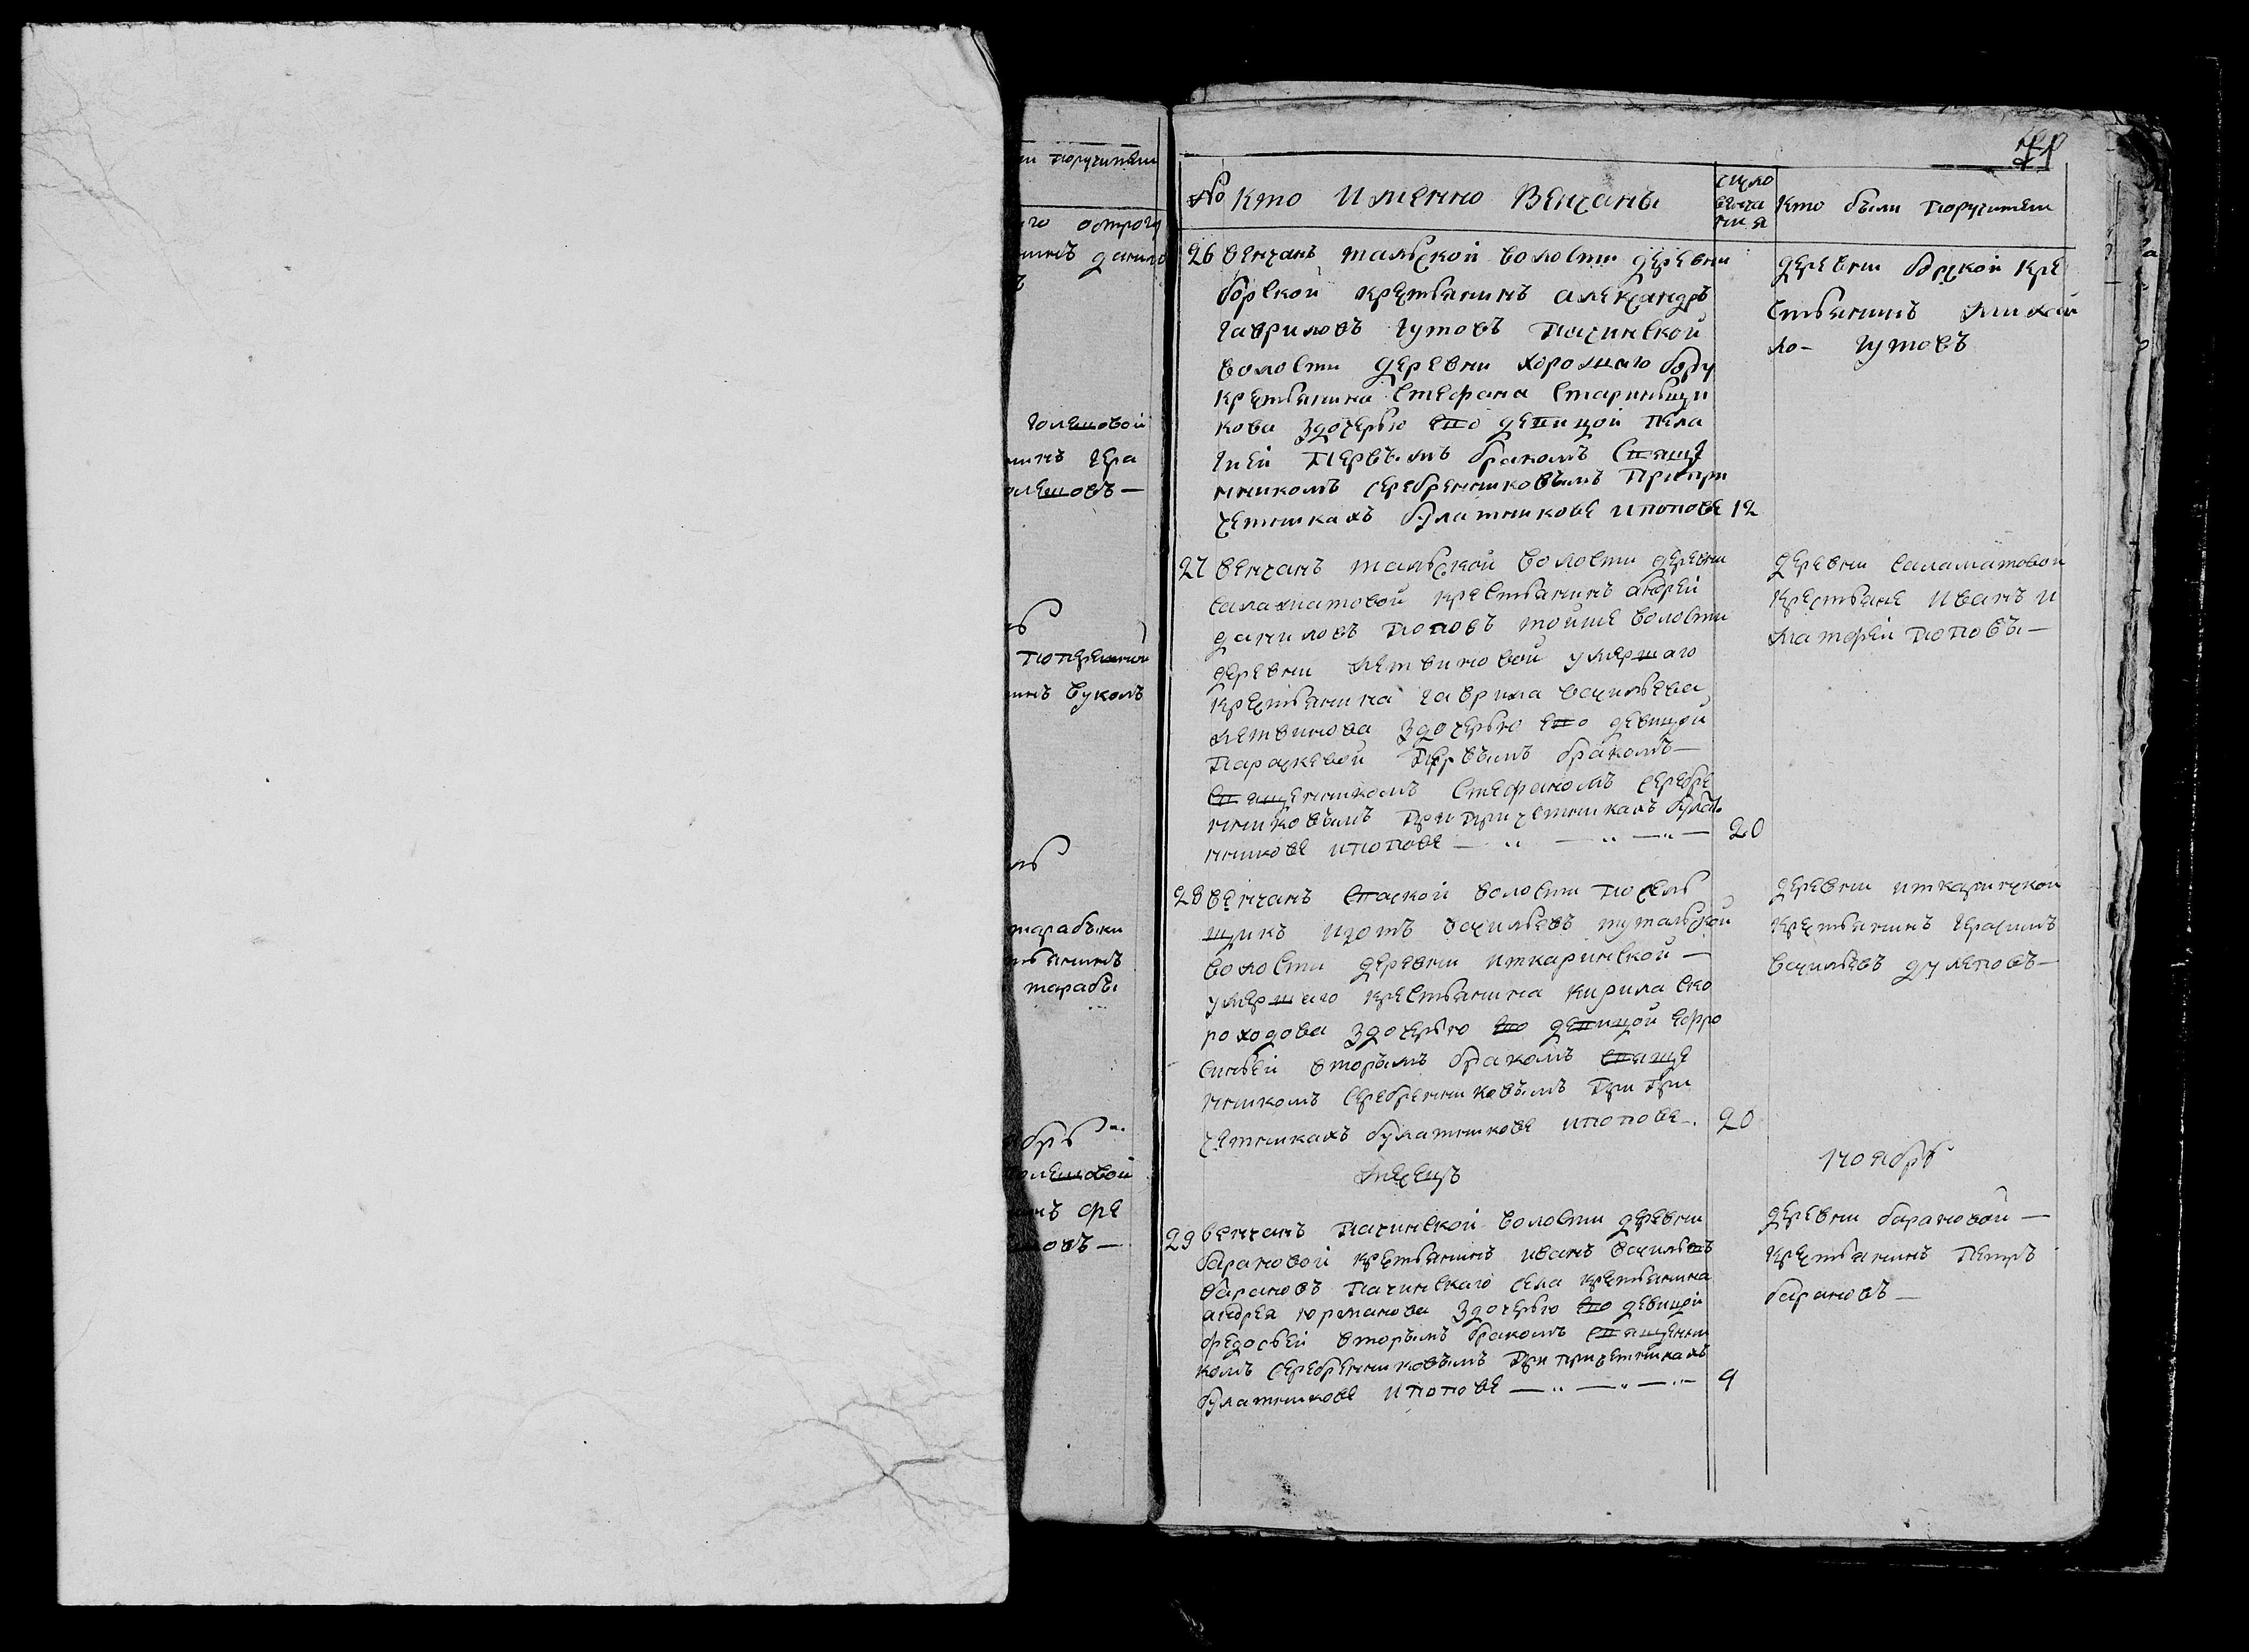 41
№ Кто имянно венчаны
число венча ния
Кто были поручители
26 венчанъ тальской волости деревни
борской крестьянинъ александръ
гавриловъ гутовъ пачинской
волости деревни хорошаго бору
крестьянина стефана старинщи
кова здочерью ево девицой пела
геей первымъ бракомъ свяще
нникомъ серебренниковымъ при при
четникахъ булатникове и попове 12
деревни борской кре
стьянинъ михай
ло гутовъ
27 венчанъ тальской волости деревни
саламатовой крестьянинъ андрей
даниловъ поповъ тойже волости
деревни летвиновой умершаго
крестьянина гаврила васильева
летвинова здочерью ево девицой
параскевой первымъ бракомъ —
священникомъ стефаномъ серебре
нниковымъ при причетникахъ булат
никове и попове — „ — „ — „ — 20
деревни саламатовой
крестьяне иванъ и
матфей поповы —
28 венчанъ спаской волости посель
щикъ изотъ васильевъ тутальской
волости деревни иткаринской —
умершаго крестьянина кирила ско
роходова здочерью ево девицой ефро
синьей вторымъ бракомъ свяще
нникомъ серебренниковымъ при при
четникахъ булатникове и попове — 20
деревни иткаринской
крестьянинъ герасимъ
васильевъ дулеповъ —
месецъ
ноябрь
29 венчанъ пачинской волости деревни
барановой крестьянинъ иванъ васильевъ
барановъ пачинскаго села крестьянина
андрея юрманова здочерью ево девицой
федосьей вторымъ бракомъ священни
комъ серебренниковымъ при причетникахъ
булатникове и попове — „ — „ — „ — 9
деревни барановой —
крестьянинъ петръ
барановъ —
поручители
острогу
данило
голешовой
гера
вуколъ
тарабыки
тарабы